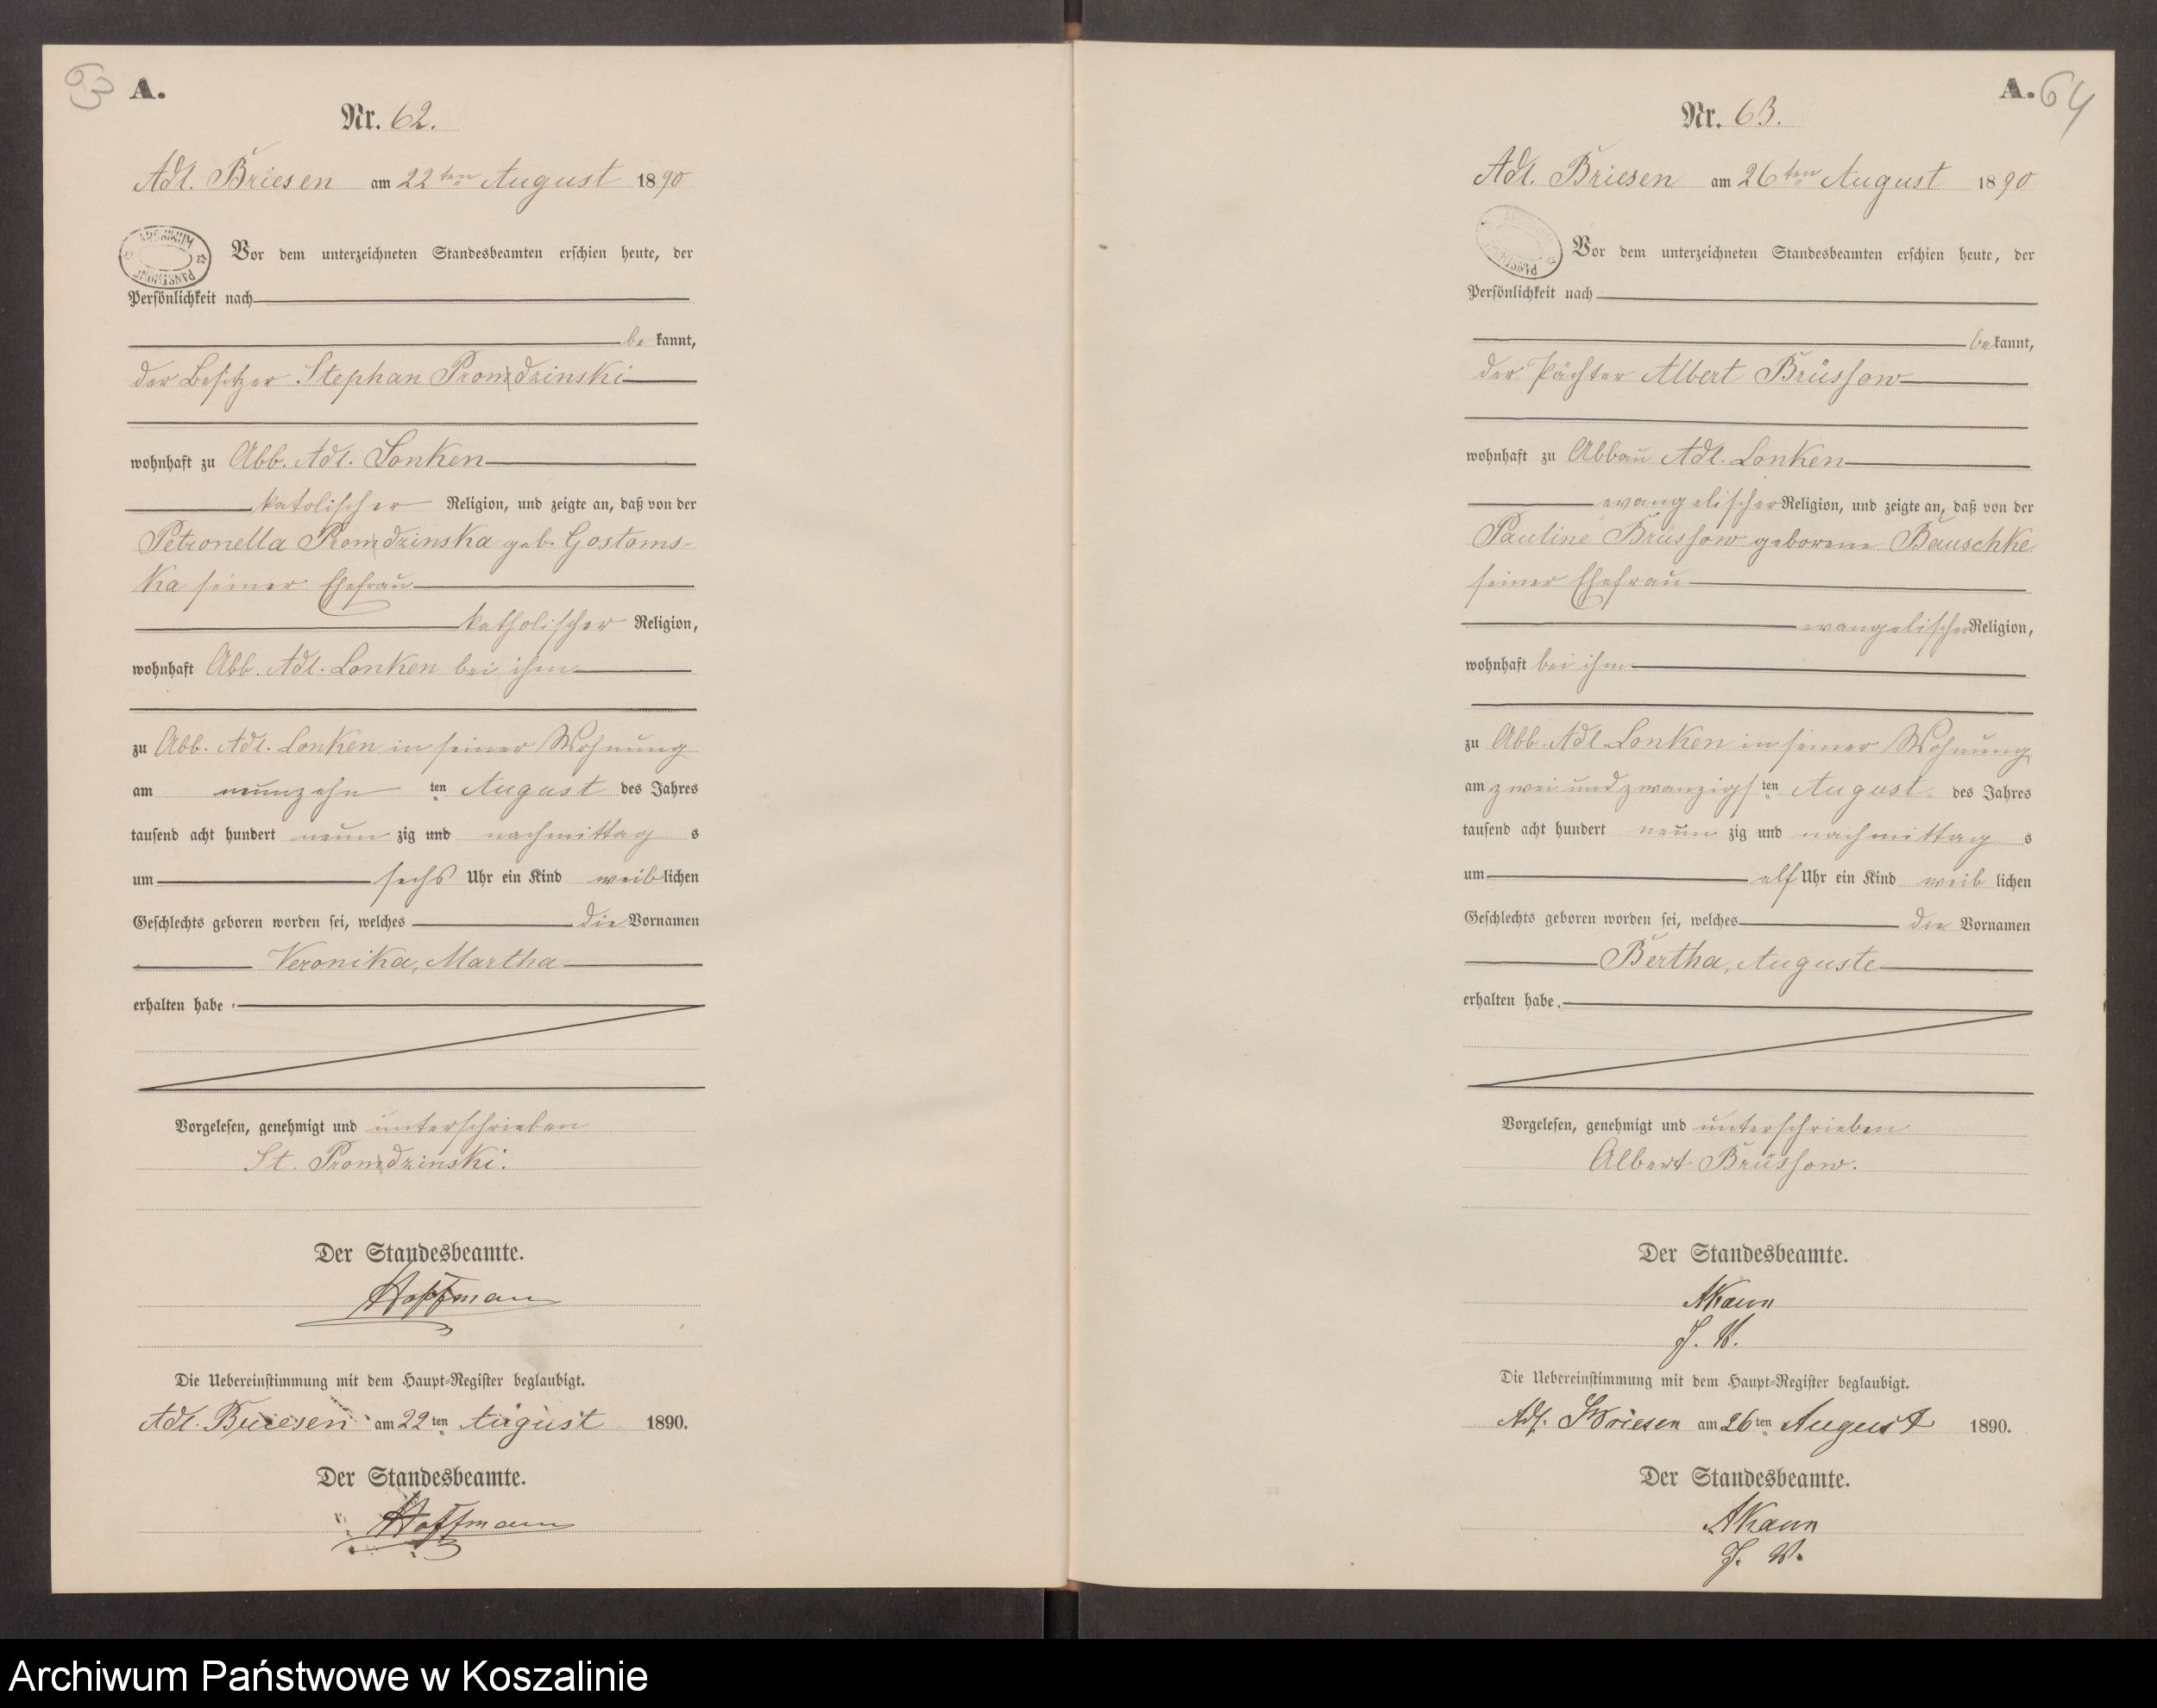 63
A.
Nr. 62.
Adl. Briesen am 22ten August 1890
ARCHIWUM PAŃSTWOWE
Vor dem unterzeichneten Standesbeamten erschien heute, der
Persönlichkeit nach
be kannt,
der Besitzer Stephan Promdzinski
wohnhaft zu Abb. Adl. Lonken
katolischer Religion, und zeigte an, daß von der
Petronella Promdzinska geb. Gostoms-
ka seiner Ehefrau
katholischer Religion,
wohnhaft Abb. Adl. Lonken bei ihm
zu Abb. Adl. Lonken in seiner Wohnung
am neunzehn ten August des Jahres
tausend acht hundert neun zig und nachmittag s
um sechs Uhr ein Kind weiblichen
Geschlechts geboren worden sei, welches die Vornamen
Veronika, Martha
erhalten habe.
Vorgelesen, genehmigt und unterschrieben
St. Promdzinski.
Der Standesbeamte.
Hoffmann
Die Uebereinstimmung mit dem Haupt-Register beglaubigt.
Adl. Briesen am 22ten August 1890.
Der Standesbeamte.
Hoffmann
A. 64
Nr. 63.
Adl. Briesen am 26ten August 1890
Vor dem unterzeichneten Standesbeamten erschien heute, der
Persönlichkeit nach
be kannt,
der Pächter Albert Brüssow
wohnhaft zu Abbau Adl. Lonken
evangelischer Religion, und zeigte an, daß von der
Pauline Brüssow geborene Bauschke
seiner Ehefrau
evangelischer Religion,
wohnhaft bei ihm
zu Abb. Adl. Lonken in seiner Wohnung
am zwei und zwanzigs ten August des Jahres
tausend acht hundert neun zig und nachmittag s
um elf Uhr ein Kind weib lichen
Geschlechts geboren worden sei, welches die Vornamen
Bertha, Auguste
erhalten habe.
Vorgelesen, genehmigt und unterschrieben
Albert Brüssow.
Der Standesbeamte.
J. V.
Die Uebereinstimmung mit dem Haupt-Register beglaubigt.
Adl. Briesen am 26ten August 1890.
Der Standesbeamte.
J. V.
Archiwum Państwowe w Koszalinie